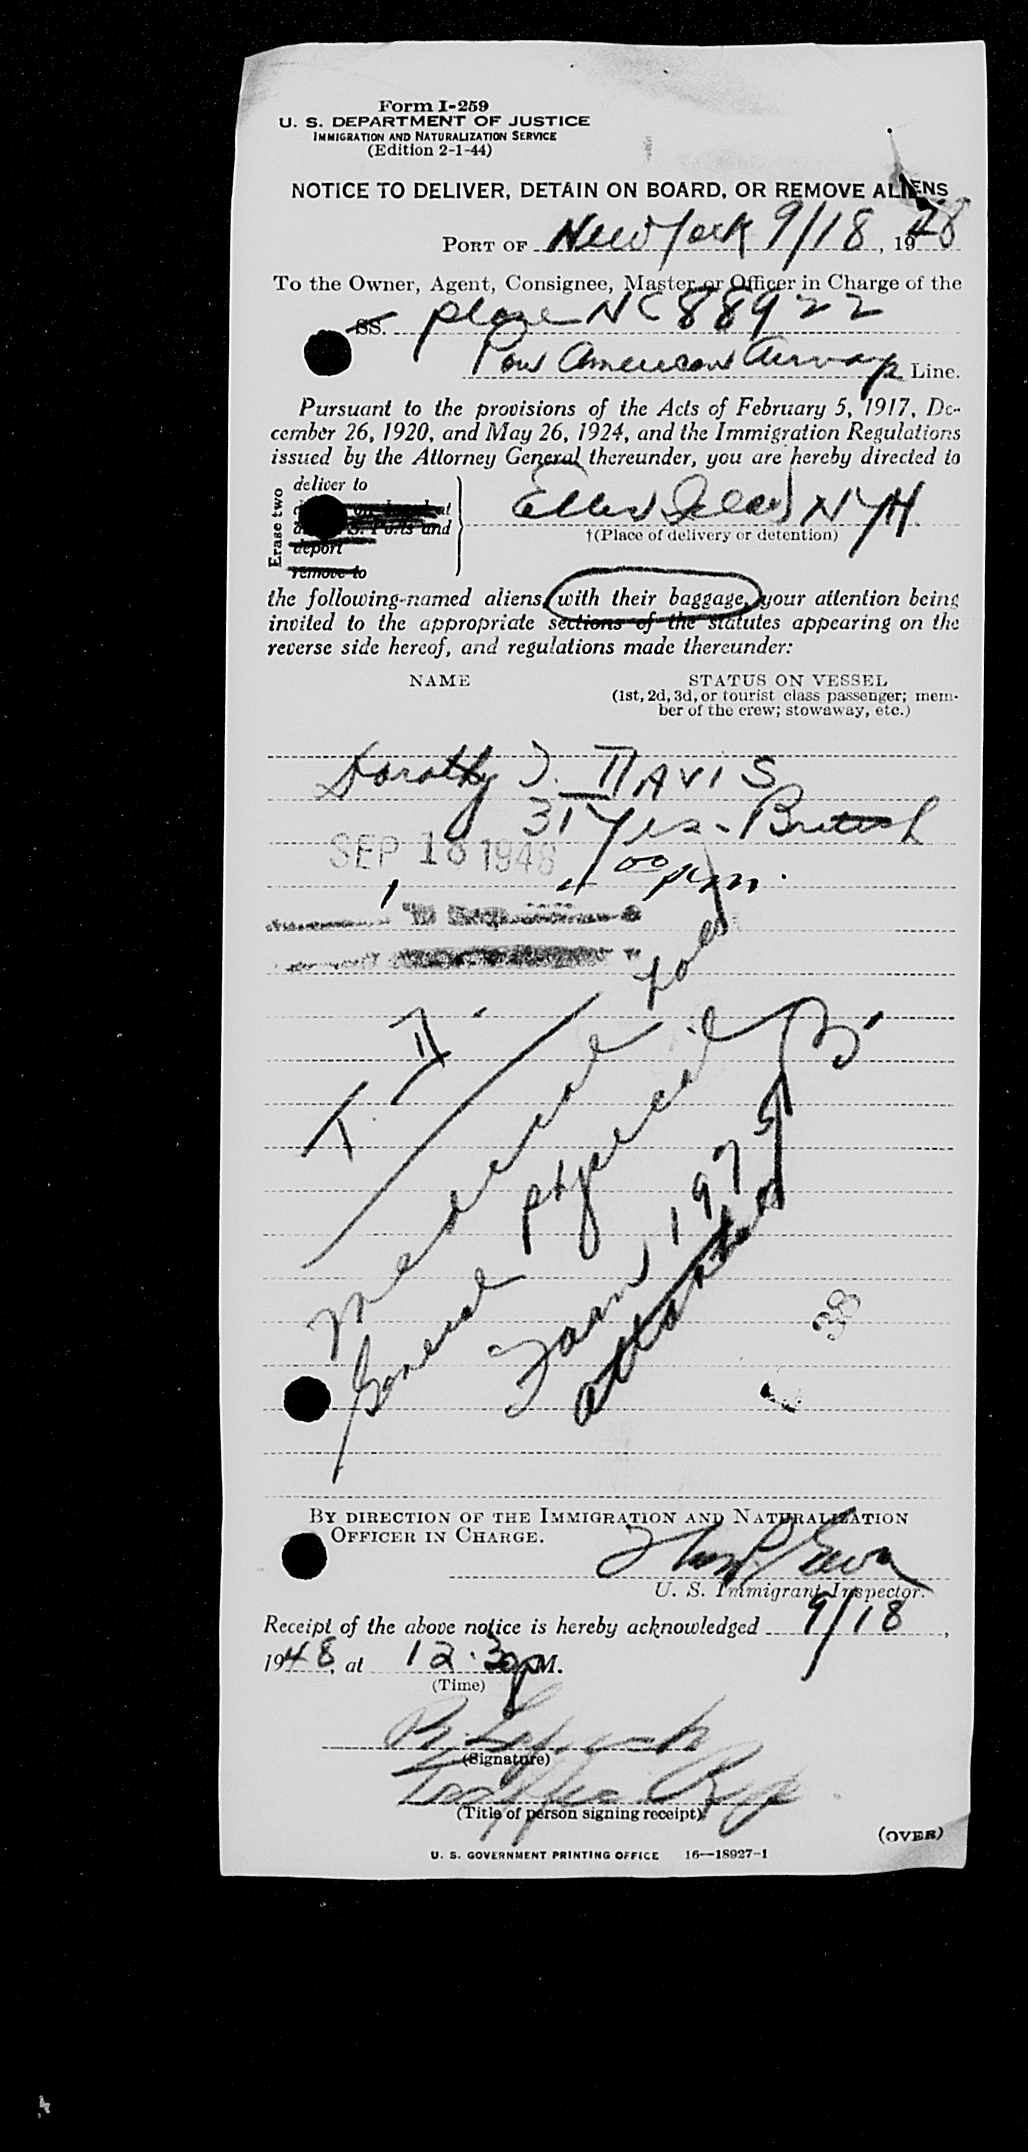 Form I-259
U. S. DEPARTMENT OF JUSTICE
IMMIGRATION AND NATURALIZATION SERVICE
(Edition 2-1-44)
NOTICE TO DELIVER, DETAIN ON BOARD, OR REMOVE ALIENS
PORT OF New York 9/18, 1948
To the Owner, Agent, Consignee, Master or Officer in Charge of the
SS. plane NC 88922
Pan American Airways Line.
Pursuant to the provisions of the Acts of February 5, 1917, De-
cember 26, 1920, and May 26, 1924, and the Immigration Regulations
issued by the Attorney General thereunder, you are hereby directed to
Erase two
deliver to
at
S. Ports and
deport
remove to
Ellis Island NYH.
†(Place of delivery or detention)
the following-named aliens, with their baggage, your attention being
invited to the appropriate sections of the statutes appearing on the
reverse side hereof, and regulations made thereunder:
NAME
STATUS ON VESSEL
(1st, 2d, 3d, or tourist class passenger; mem-
ber of the crew; stowaway, etc.)
Dorothy J. DAVIS
31 yrs - British
SEP 18 1948
4 00 pm.
T. D.
Medical Hold
General physical B.
Form 1975
attached
38
BY DIRECTION OF THE IMMIGRATION AND NATURALIZATION
OFFICER IN CHARGE.
U. S. Immigrant Inspector.
Receipt of the above notice is hereby acknowledged 9/18,
1948, at 12.30 P M.
(Time)
(Signature)
Traffic Rep
(Title of person signing receipt)
(OVER)
U. S. GOVERNMENT PRINTING OFFICE 16—18927-1